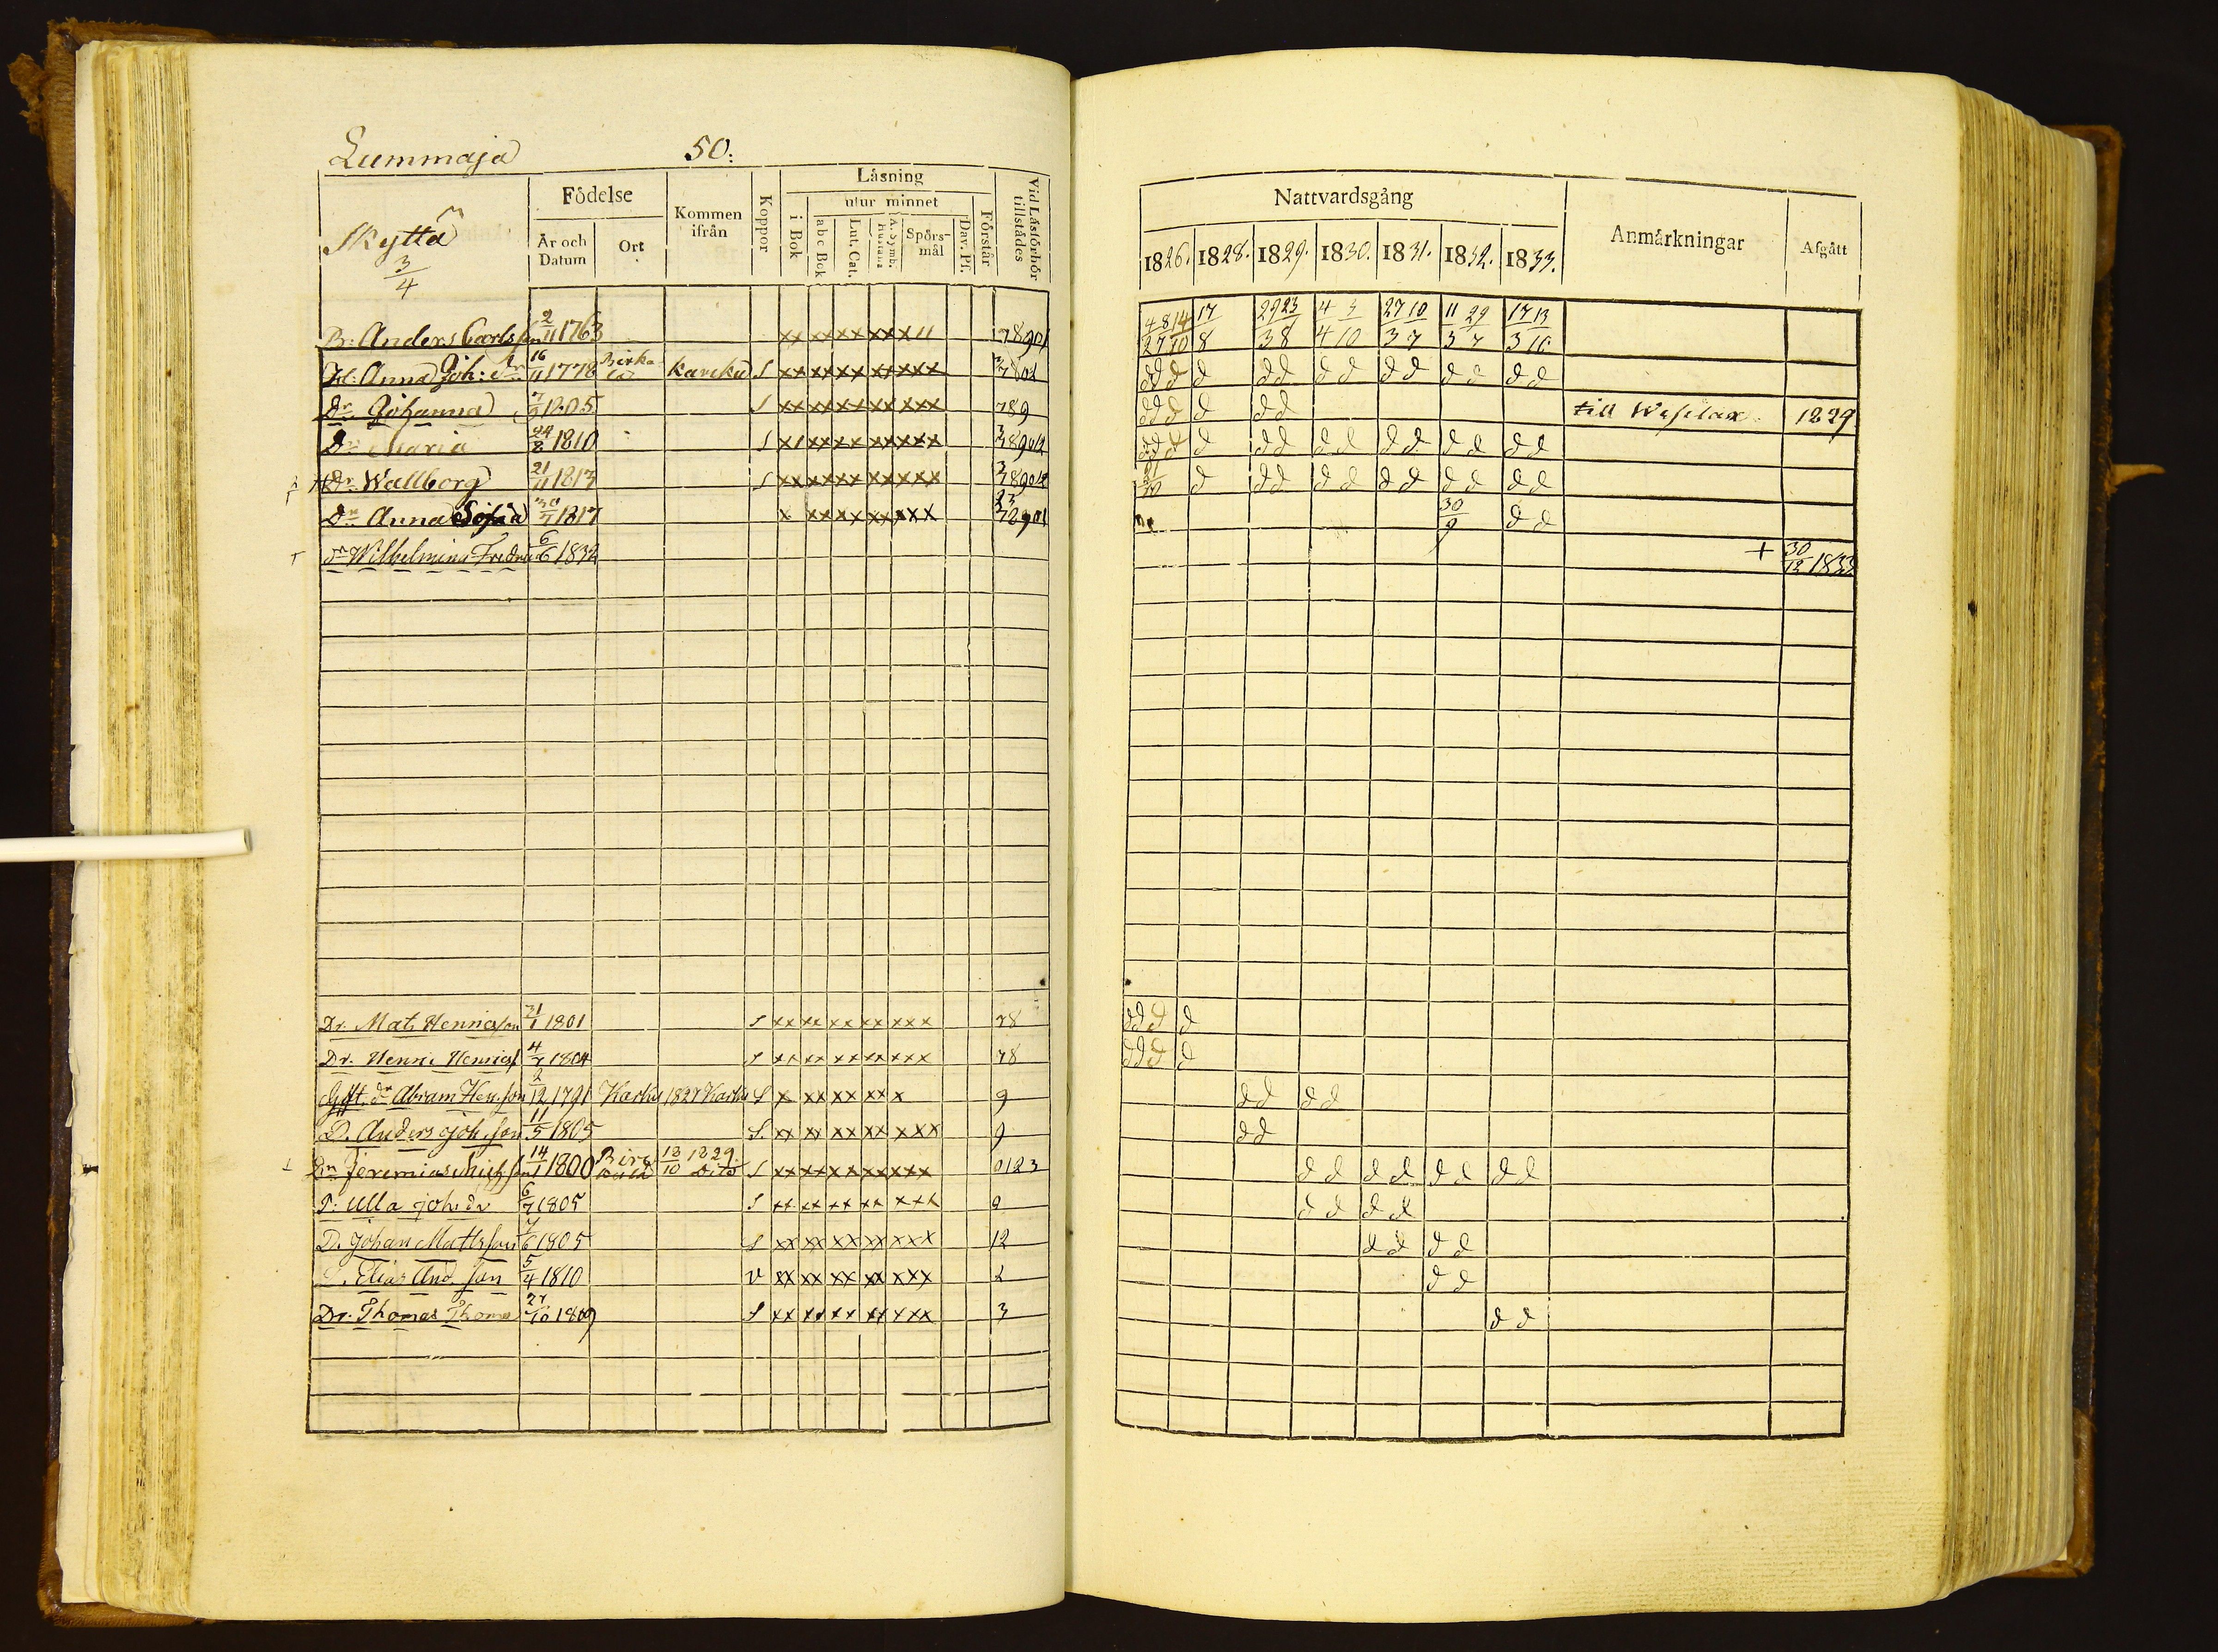 Lummaja 50:
Skyttä
3/4
Födelse
År och Datum
Ort
Kommen ifrån
Koppor
Läsning
utur minnet
i Bok
abc Bok
Lut. Cat.
A. Symb.
Hustafla
Spörsmål
Dav. Ps.
Förstår
Vid Läsförhör tillstädes
B: Anders Carlsson 2/11 1763 xx xx xx xx x 11 78901
H: Anna Joh: dr 16/11 1778 Karcku S xx xx xx xx xxx
Dr. Johanna 1805 S xx xx xx xx xxx 789
Dr Maria 24/8 1810 S xx xx xx xxx
Dr Wallborg 21/11 1817 S xx xx xx xx xxx
Dr Anna Sofia 30/7 1817 x xx xx xx xxx
dr Wilhelmina Fredrica 6/6 1832
Dr. Mats Henricsson 21/1 1801 S xx xx xx xx xxx 78
Dr. Henr. Henrics 4/7 1804 S xx xx xx xx xxx 78
Gift dr Abram Hen.son 2/12 1791 Karku 1827 Karku S x xx xx xx x 9
D. Anders Joh.son 11/5 1805 S. xx xx xx xx xxx 9
Dr Jeremias Mich.son 14/1 1800 13/10 1829. dito S xx xx xx xx xxx 0123
P: Ulla Joh: dr 6/7 1805 S xx xx xx xx xxx 9
D. Johan Mattsson 7/6 1805 S xx xx xx xx xxx 12
D. Elias And. son 5/4 1810 v xx xx xx xx xxx 2
Dr. Thomas Thoma 27/10 1809 S xx xx xx xx xxx 3
Nattvardsgång
Anmärkningar
Afgått
1826. 1828. 1829. 1830. 1831. 1832. 1833.
4 8 14 17 29 23 4 3 27 10 11 29 17 13
2 7 10 8 3 8 4 10 3 7 3 7 3 10
d d d d d d d d d d d d d d
d d d d d d till Westlax. 1829
d d d d d d d d d d d d d d
d d d d d d d d d d d
30/9 d d
+ 30/12 1833
d d d d
d d d d
d d d d
d d
d d d d d d d d
d d d d
d d d d
d d
d d